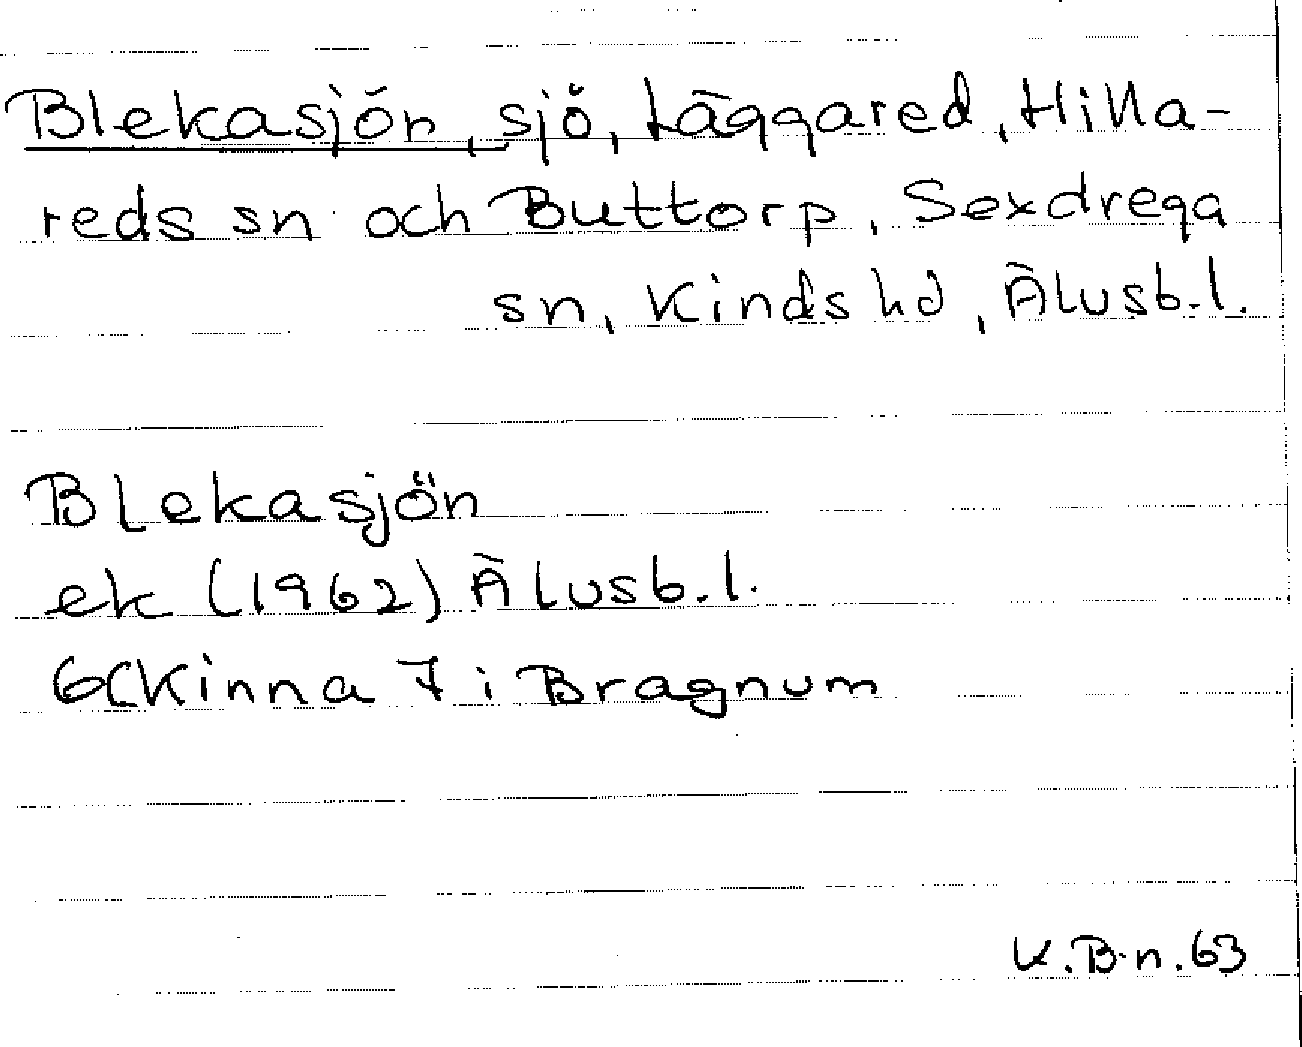 Blekasjön, sjö, Läggared, Hilla-
reds sn och Buttorp, Sexdrega
sn, Kinds hd, Älvsb.l.
Blekasjön
ek (1962) Älvsb.l.
6C Kinna 7 i Bragnum
K.B-n.63